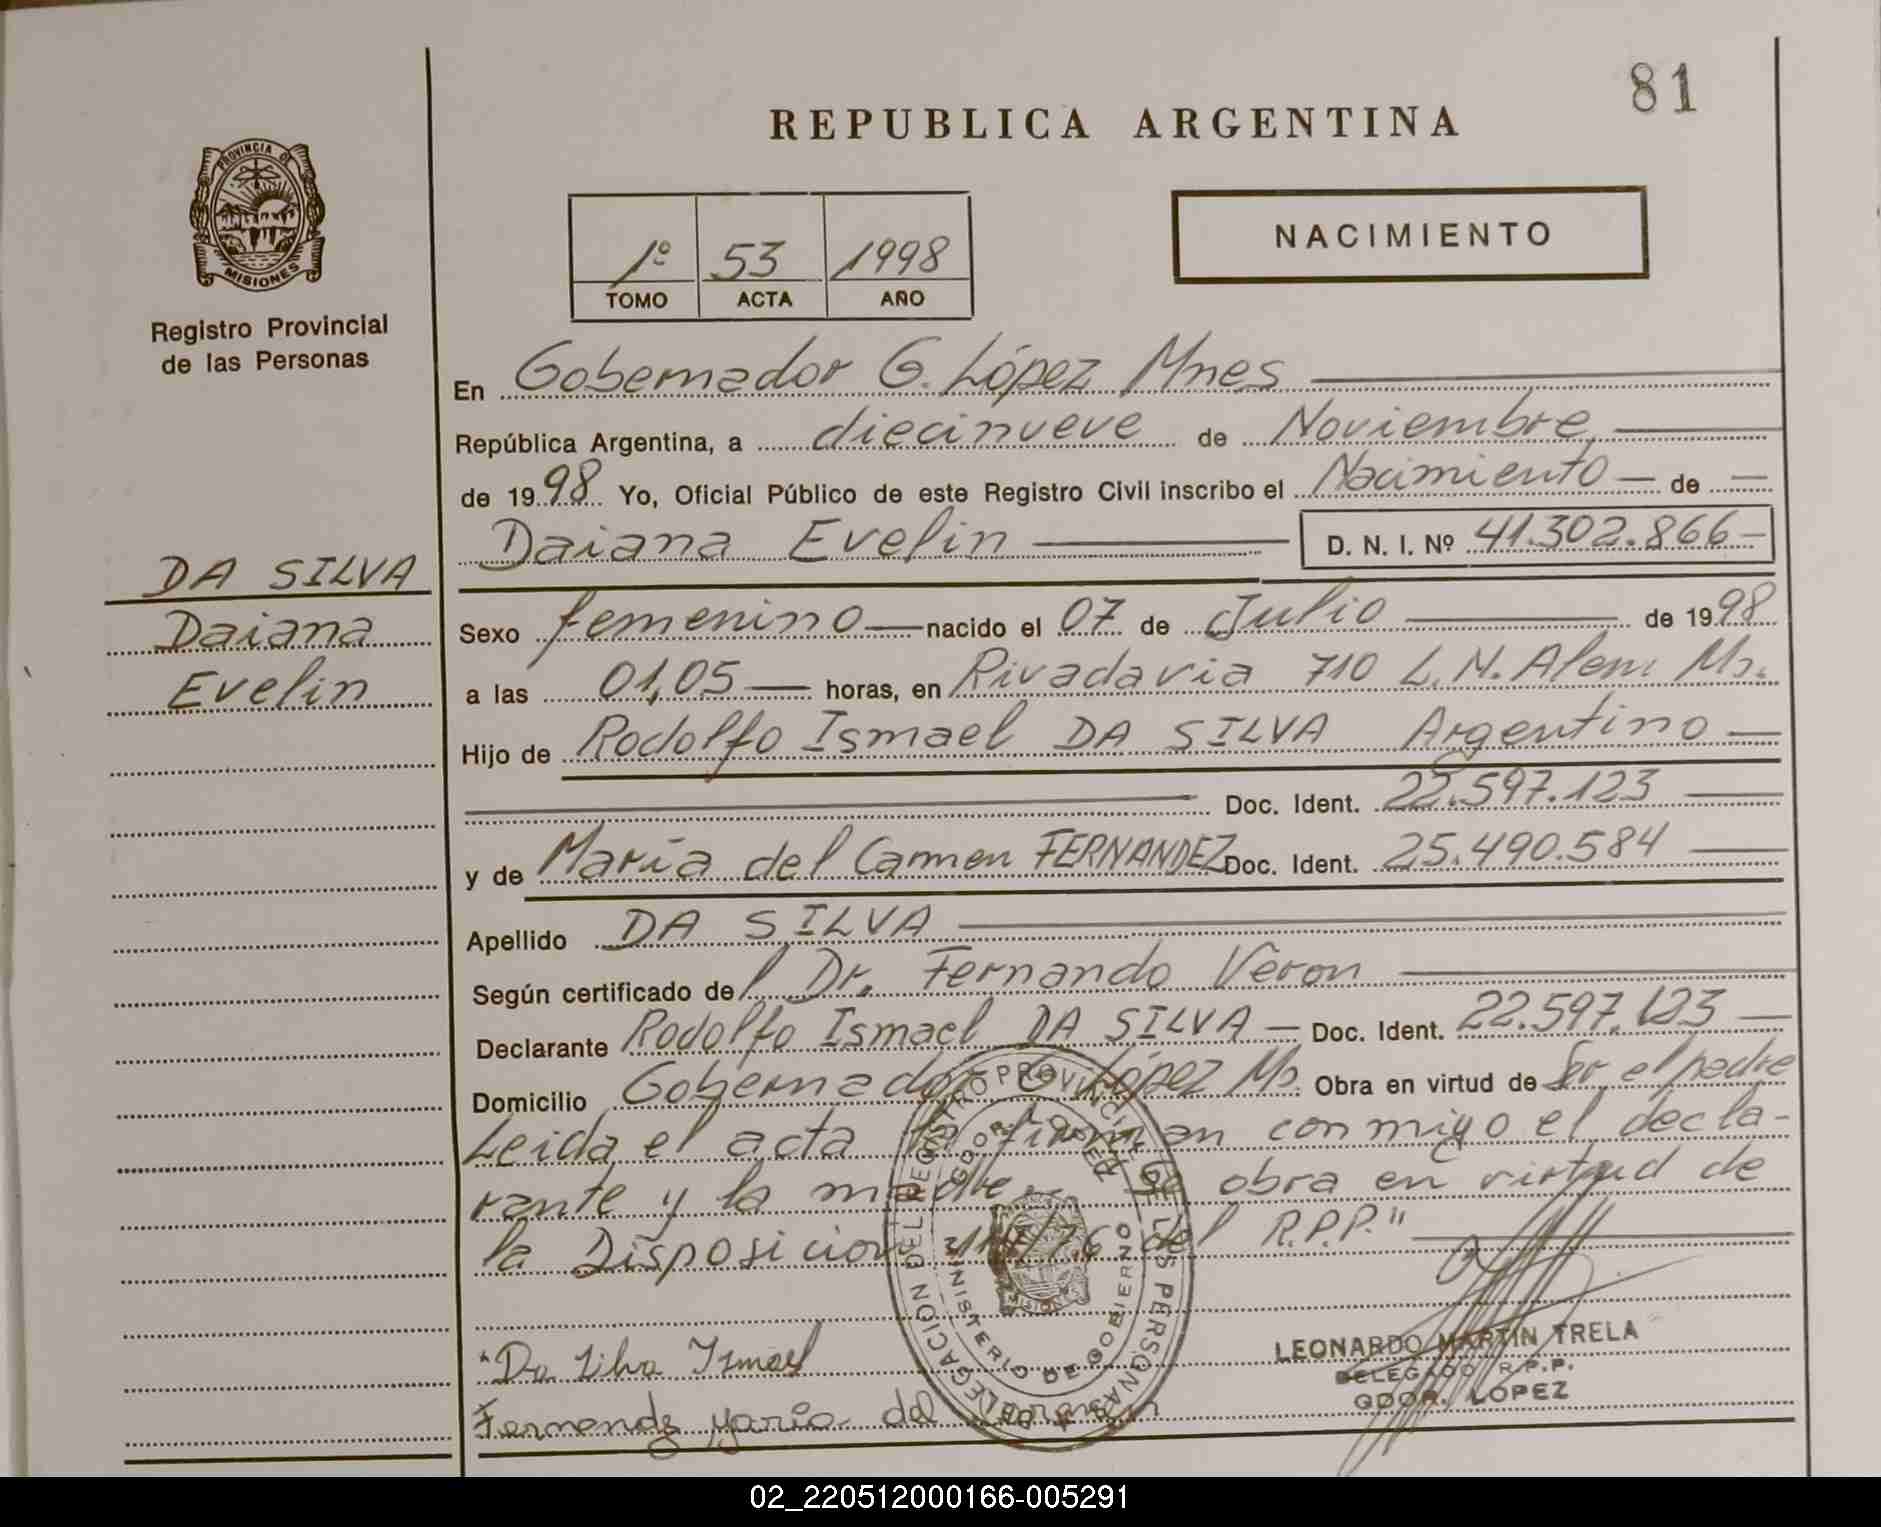 81
REPUBLICA ARGENTINA
PROVINCIA DE
MISIONES
Registro Provincial
de las Personas
1º 53 1998
TOMO ACTA AÑO
NACIMIENTO
En Gobernador G. López Mnes
República Argentina, a diecinueve de Noviembre
de 1998 Yo, Oficial Público de este Registro Civil inscribo el Nacimiento — de —
Daiana Evelin D. N. I. Nº 41.302.866-
DA SILVA
Daiana
Evelin
Sexo femenino — nacido el 07 de Julio de 1998
a las 01,05 — horas, en Rivadavia 710 L.N. Alem Ms.
Hijo de Rodolfo Ismael DA SILVA Argentino —
Doc. Ident. 22.597.123
y de María del Carmen FERNANDEZ Doc. Ident. 25.490.584
Apellido DA SILVA
Según certificado del Dr. Fernando Verón
Declarante Rodolfo Ismael DA SILVA — Doc. Ident. 22.597.123
Domicilio Gobernador G. López Ms. Obra en virtud de Ser el padre
Leida el acta la firman conmigo el decla-
rante y la madre. Se obra en virtud de
la Disposicion del R.P.P."
DELEGACION DEL REGISTRO PROVINCIAL DE LAS PERSONAS
GDOR. LOPEZ
MINISTERIO DE GOBIERNO
MISIONES
Da Silva Ismael
Fernandz María del Carmen
LEONARDO MARTIN TRELA
DELEGADO R.P.P.
GDOR. LOPEZ
02_220512000166-005291